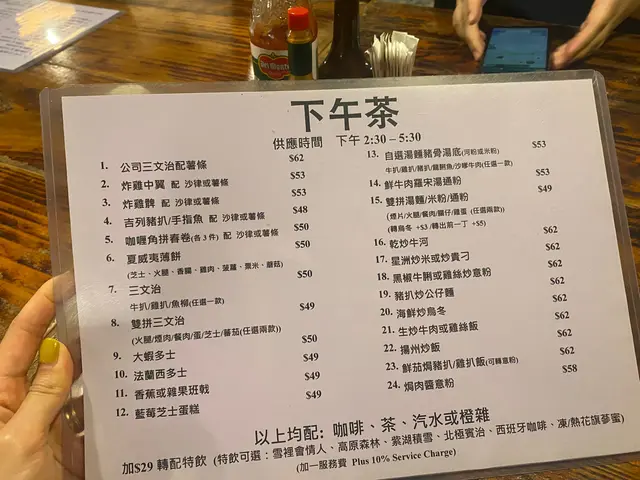 下午茶
供應時間 下午 2:30 - 5:30
1. 公司三文治配薯條 $62
2. 炸雞中翼 配 沙律或薯條 $53
3. 炸雞髀 配 沙律或薯條 $53
4. 吉列豬扒/手指魚 配 沙律或薯條 $48
5. 咖喱角拼春卷(各 3 件) 配 沙律或薯條 $50
6. 夏威夷薄餅 $50
(芝士、火腿、香腸、雞肉、菠蘿、粟米、蘑菇)
7. 三文治 $50
牛扒/雞扒/魚柳(任選一款)
8. 雙拼三文治 $49
(火腿/煙肉/餐肉/蛋/芝士/蕃茄(任選兩款))
9. 大蝦多士 $50
10. 法蘭西多士 $49
11. 香蕉或雜果班戟 $49
12. 藍莓芝士蛋糕 $49
13. 自選湯麵豬骨湯底(河粉或米粉) $53
牛扒/雞扒/豬扒/雞脷魚/沙嗲牛肉(任選一款)
14. 鮮牛肉羅宋湯通粉 $53
15. 雙拼湯麵/米粉/通粉 $49
(煙片/火腿/餐肉/腸仔/雞蛋 (任選兩款))
(轉烏冬 +$3 /轉出前一丁 +$5)
16. 乾炒牛河 $62
17. 星洲炒米或炒貴刁 $62
18. 黑椒牛脷或雞絲炒意粉 $62
19. 豬扒炒公仔麵 $62
20. 海鮮炒烏冬 $62
21. 生炒牛肉或雞絲飯 $62
22. 揚州炒飯 $62
23. 鮮茄焗豬扒/雞扒飯(可轉意粉) $62
24. 焗肉醬意粉 $58
以上均配: 咖啡、茶、汽水或橙雜
加$29 轉配特飲 (特飲可選：雪裡會情人、高原森林、紫湖積雪、北極賓治、西班牙咖啡、凍/熱花旗蔘蜜)
(加一服務費 Plus 10% Service Charge)